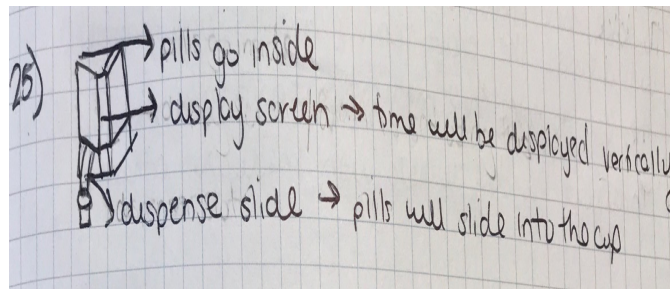 25)
pills go inside
display screen → time will be displayed vertically
dispense slide → pills will slide into the cup